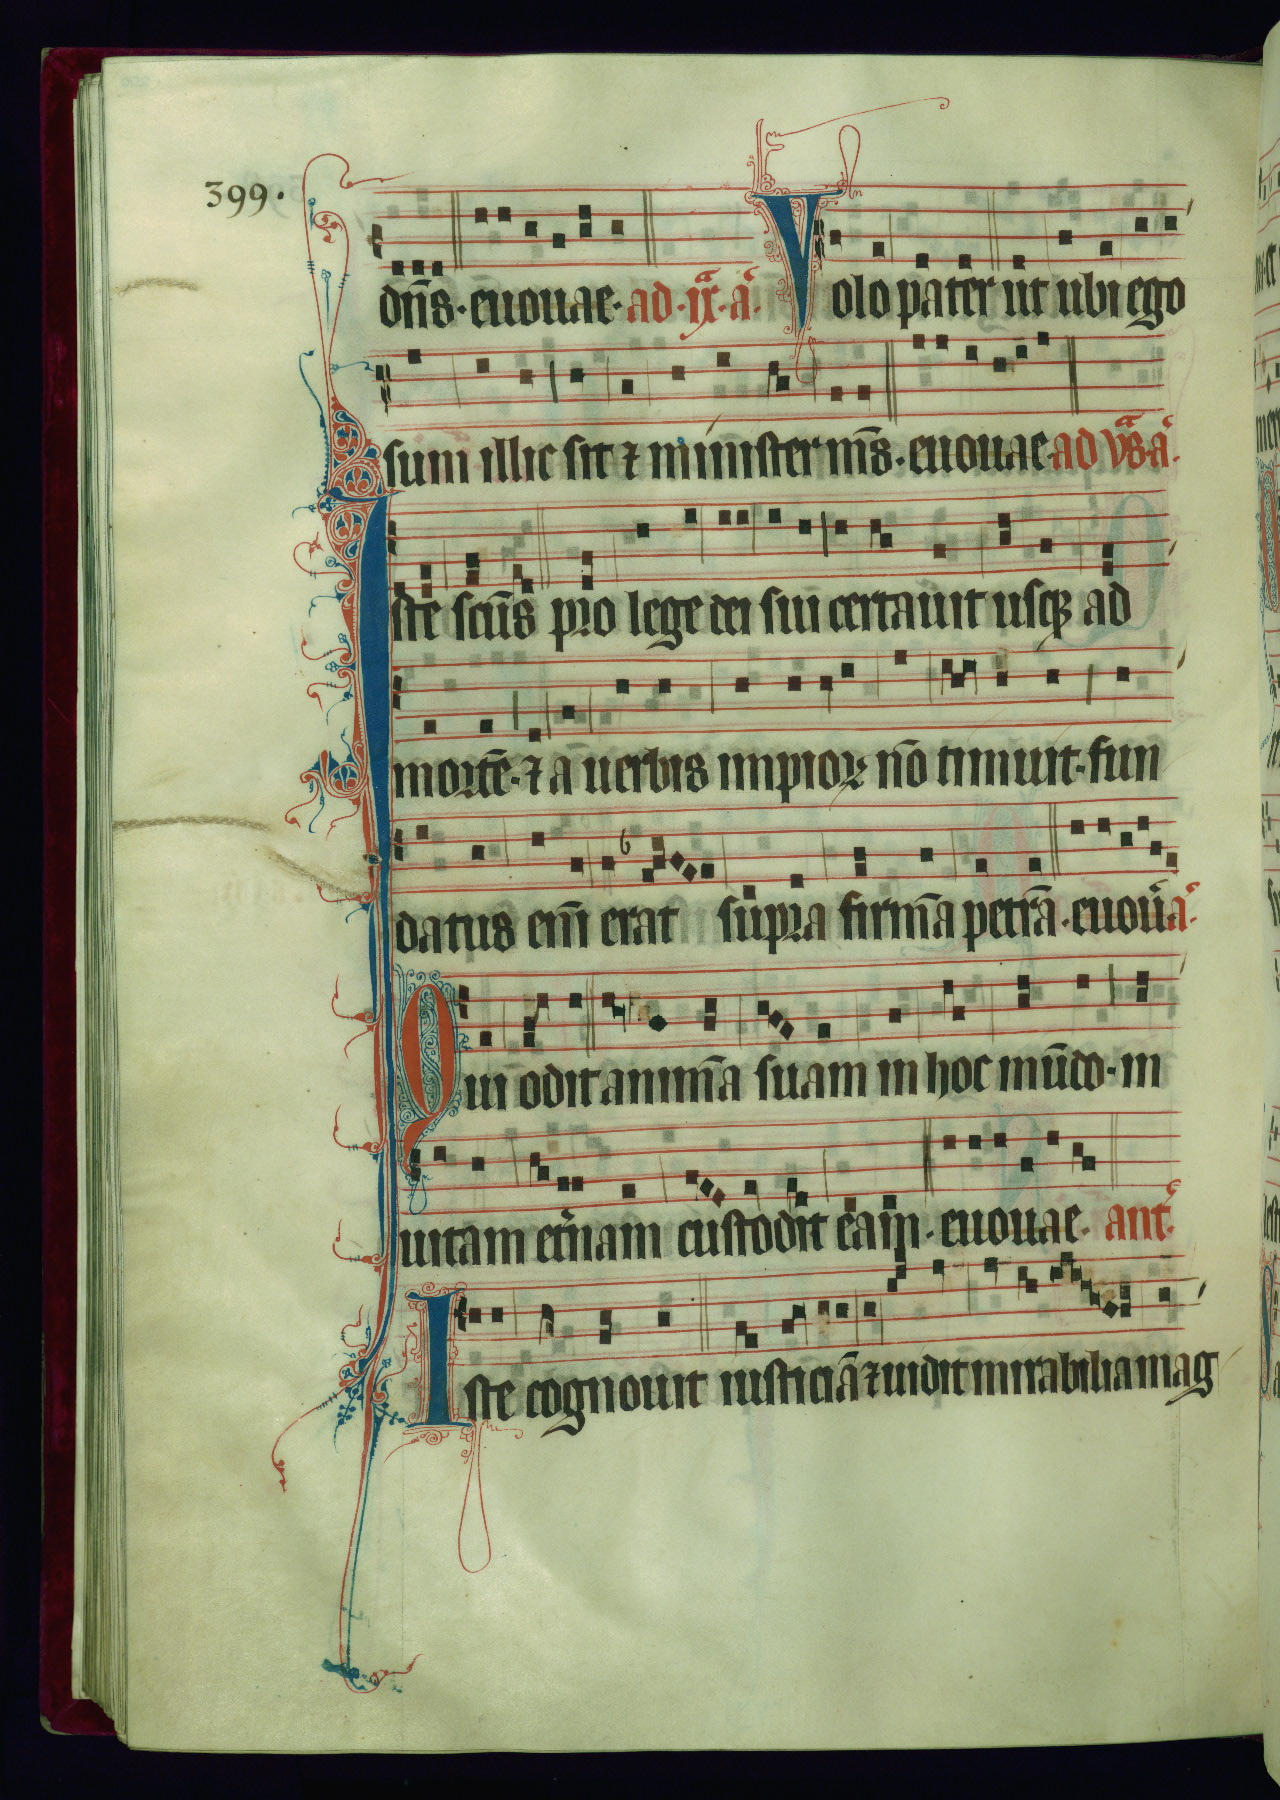 399.
dn̄s. euouae. ad. ıx. a. Volo pater ut ubi ego
sum illic sit ⁊ minister m̄s. euouae. ad vs. a.
Iste scūs pro lege dei sui certauit usqꝫ ad
mortē. ⁊ a uerbis impioꝝ nō timuit. fun
datus eni erat supra firmā petrā. euou a.
Qui odit animā suam in hoc mūdo. in
uitam et̾nam custodit eam. euouae. ant.
Iste cognouit iusticiā ⁊ uidit mirabilia mag